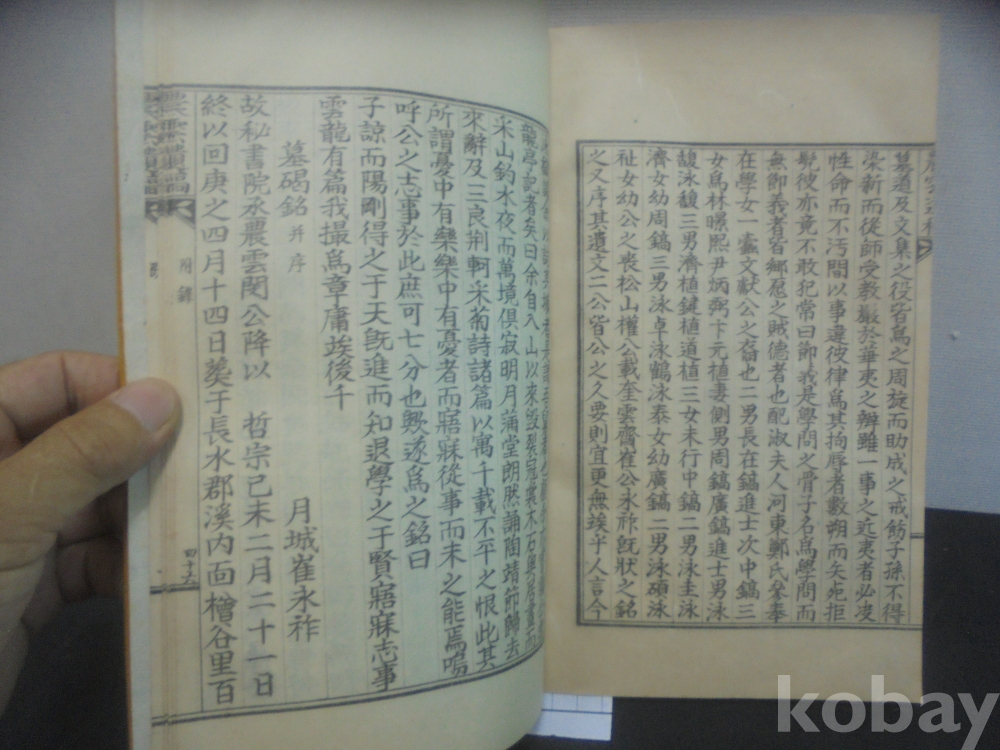 纂遺及文集之役皆爲之周旋而助成之戒飭子孫不得
染新而從師受教嚴於華夷之辨雖一事之近夷者必決
性命而不汚間以事違彼律爲其拘辱者數朔而矢死拒
髡彼亦竟不敢犯常曰節義是學問之骨子名爲學問而
無節義者皆鄕愿之賊德者也配淑夫人河東鄭氏榮奉
在學女一蠹文獻公之裔也二男長在鎬進士次中鎬三
女爲林暻熙尹炳弼卞元植妻側男周鎬廣鎬進士男泳
馥泳馥三男濟植鍵植道植三女未行中鎬二男泳圭泳
濟女幼周鎬三男泳卓泳鶴泳泰女幼廣鎬二男泳碩泳
祉女幼公之喪松山權公載奎雲齋崔公永祚旣狀之銘
之又序其遺文二公皆公之久要則宜更無竢乎人言今
龍亭記者矣曰余自入山以來毁裂冠裳木石與居
米山釣水夜而萬境俱寂明月滿堂朗然誦陶靖節歸去
來辭及三良荊軻米菊詩諸篇以寓千載不平之恨此其
所謂憂中有樂樂中有憂者而寤寐從事而未之能焉嗚
呼公之志事於此庶可七分也歟遂爲之銘曰
子諒而陽剛得之于天旣進而知退學之于賢寤寐志事
雲龍有篇我撮爲章庸竢後千
月城崔永祚
墓碣銘 并序
故秘書院丞農雲閔公降以 哲宗己未二月二十一日
終以回庚之四月十四日葬于長水郡溪內面檜谷里百
附錄
四十六
kobay